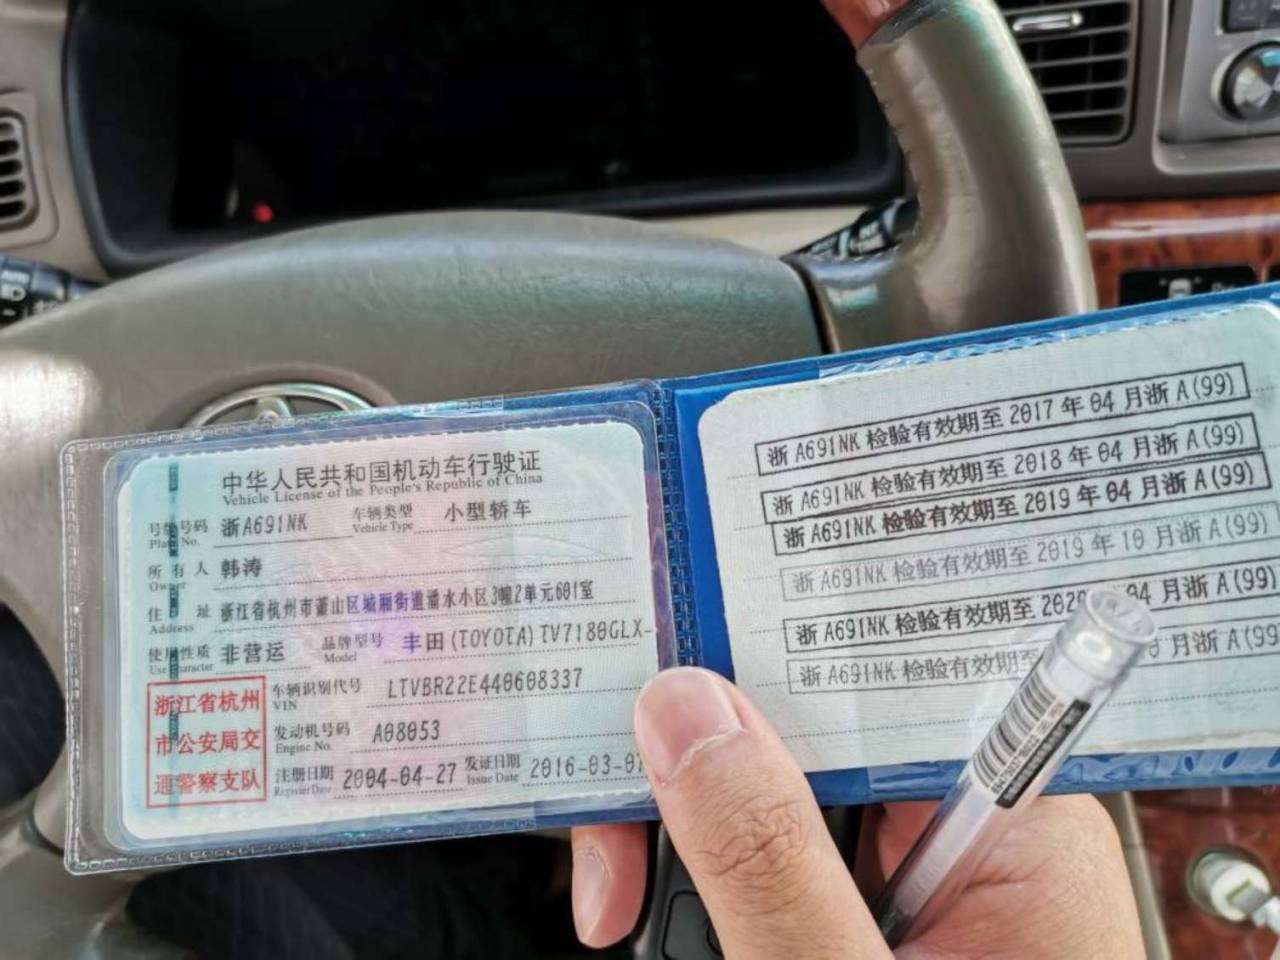 中华人民共和国机动车行驶证
Vehicle License of the People's Republic of China
号牌号码 浙A691NK 车辆类型 小型轿车
Plate No. Vehicle Type
所有人 韩涛
Owner
住址 浙江省杭州市萧山区城厢街道潘水小区3幢2单元601室
Address
使用性质 非营运 品牌型号 丰田(TOYOTA)TV7180GLX-
Use Character Model
浙江省杭州
市公安局交
通警察支队
车辆识别代号 LTVBR22E440608337
VIN
发动机号码 A08053
Engine No.
注册日期 2004-04-27 发证日期 2016-03-07
Register Date Issue Date
浙A691NK 检验有效期至 2017 年 04 月浙 A(99)
浙A691NK 检验有效期至 2018 年 04 月浙 A(99)
浙A691NK 检验有效期至 2019 年 04 月浙 A(99)
浙A691NK 检验有效期至 2019 年 10 月浙 A(99)
浙A691NK 检验有效期至 2020 04 月浙 A(99)
浙A691NK 检验有效期至 月浙 A(99
AUTO